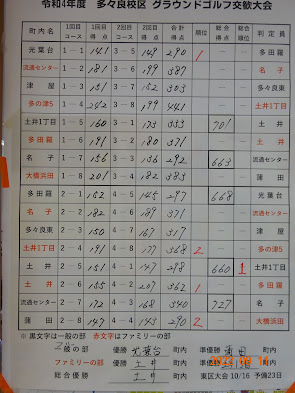 令和4年度 多々良校区 グラウンドゴルフ交歓大会
町内名 1回目コース 1回目得点 2回目コース 2回目得点 合計得点 順位 総合得点 総合順位 判定員
光葉台 1－1 141 3－5 149 290 1 多田羅
流通センター 1－2 181 3－6 199 387 名子
多々良東 1－3 151 3－7 152 303 多々良東
多の津5 1－4 242 3－8 199 441 土井1丁目
土井1丁目 1－5 160 3－1 173 333 701 土井
多田羅 1－6 191 3－2 180 371 土井
名子 1－7 156 3－3 136 292 663 流通センター
大橋浜田 1－8 201 3－4 182 383 蒲田
多田羅 2－1 152 4－5 145 297 668 光葉台
名子 2－2 182 4－6 189 371 流通センター
多々良東 2－3 150 4－7 167 317 蒲田
土井1丁目 2－4 191 4－8 177 368 2 多の津5
土井 2－5 151 4－1 147 298 660 1 土井1丁目
土井 2－6 155 4－2 207 362 1 多田羅
流通センター 2－7 172 4－3 168 340 727 名子
蒲田 2－8 147 4－4 143 290 2 大橋浜田
※ 黒文字は一般の部 赤文字はファミリーの部
一般の部 優勝 光葉台 町内 準優勝 蒲田 町内
ファミリーの部 優勝 土井 町内 準優勝 町内
総合優勝 土井 町内 東区大会 10/16 予備23日